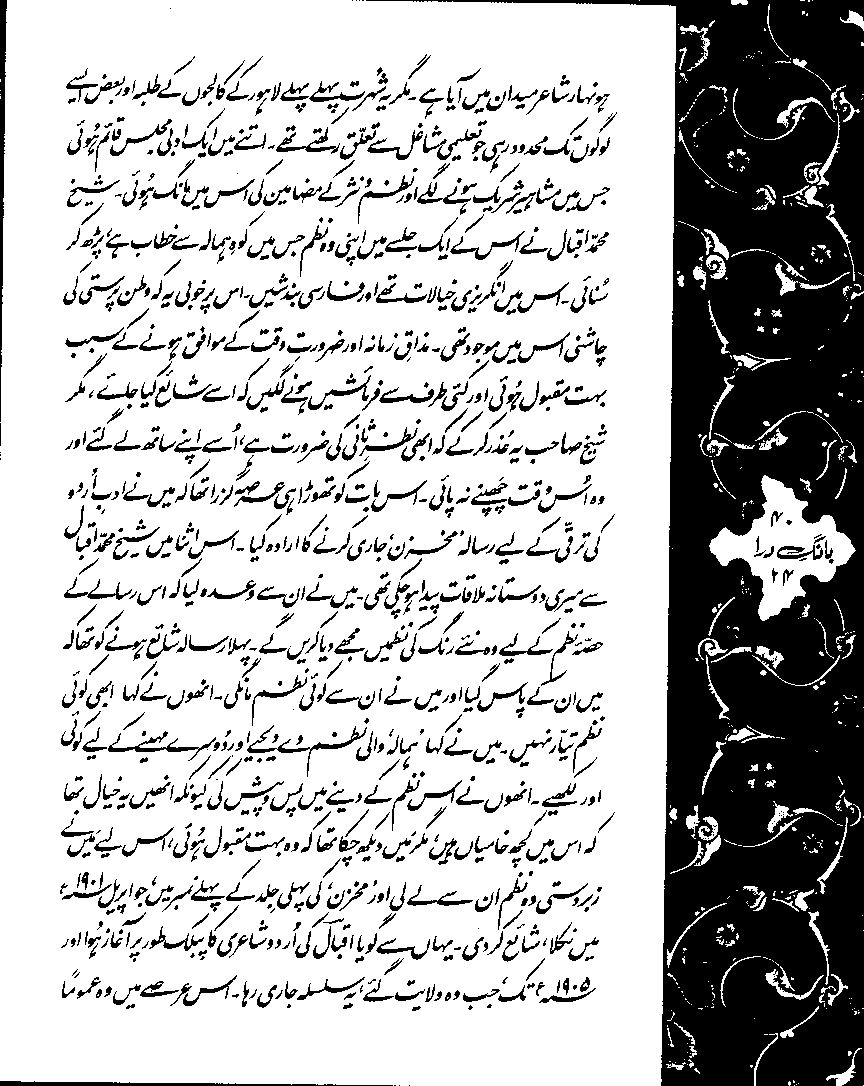 ہونہار شاعر میدان میں آیا ہے۔ مگر یہ شُہرت پہلے پہلے لاہور کے کالجوں کے طلبہ اور بعض ایسے
لوگوں تک محدود رہی جو تعلیمی مشاغل سے تعلّق رکھتے تھے۔ اتنے میں ایک ادبی مجلس قائم ہُوئی
جس میں مشاہیر شریک ہونے لگے اور نظم و نثر کے مضامین کی اس میں مانگ ہُوئی۔ شیخ
محمّد اقبال نے اس کے ایک جلسے میں اپنی وہ نظم جس میں کوہِ ہمالہ سے خطاب ہے، پڑھ کر
سُنائی۔ اس میں انگریزی خیالات تھے اور فارسی بندشیں۔ اس پر خوبی یہ کہ وطن پرستی کی
چاشنی اس میں موجود تھی۔ مذاقِ زمانہ اور ضرورتِ وقت کے موافق ہونے کے سبب
بہت مقبول ہُوئی اور کئی طرف سے فرمائشیں ہونے لگیں کہ اسے شائع کیا جائے، مگر
شیخ صاحب یہ عُذر کر کے کہ ابھی نظرِثانی کی ضرورت ہے، اُسے اپنے ساتھ لے گئے اور
وہ اُس وقت چھپنے نہ پائی۔ اس بات کو تھوڑا ہی عرصہ گزرا تھا کہ میں نے ادبِ اُردو
کی ترقّی کے لیے رسالہ 'مخزن' جاری کرنے کا ارادہ کیا۔ اس اثنا میں شیخ محمّد اقبال
سے میری دوستانہ ملاقات پیدا ہو چکی تھی۔ میں نے ان سے وعدہ لیا کہ اس رسالے کے
حصّۂ نظم کے لیے وہ نئے رنگ کی نظمیں مجھے دیا کریں گے۔ پہلا رسالہ شائع ہونے کو تھا کہ
میں ان کے پاس گیا اور میں نے ان سے کوئی نظم مانگی۔ انھوں نے کہا 'ابھی کوئی
نظم تیّار نہیں'۔ میں نے کہا 'ہمالہ' والی نظم دے دیجیے اور دُوسرے مہینے کے لیے کوئی
اور لکھیے۔ انھوں نے اس نظم کے دینے میں پس و پیش کی کیونکہ انھیں یہ خیال تھا
کہ اس میں کچھ خامیاں ہیں، مگر مَیں دیکھ چکا تھا کہ وہ بہت مقبول ہُوئی، اس لیے مَیں نے
زبردستی وہ نظم ان سے لے لی اور 'مخزن' کی پہلی جلد کے پہلے نمبر میں، جو اپریل ۱۹۰۱ء
میں نکلا، شائع کر دی۔ یہاں سے گویا اقبالؔ کی اُردو شاعری کا پبلک طور پر آغاز ہُوا اور
۱۹۰۵ء تک، جب وہ ولایت گئے، یہ سلسلہ جاری رہا۔ اس عرصے میں وہ عموماً
۴۰
بانگِ درا
۲۴